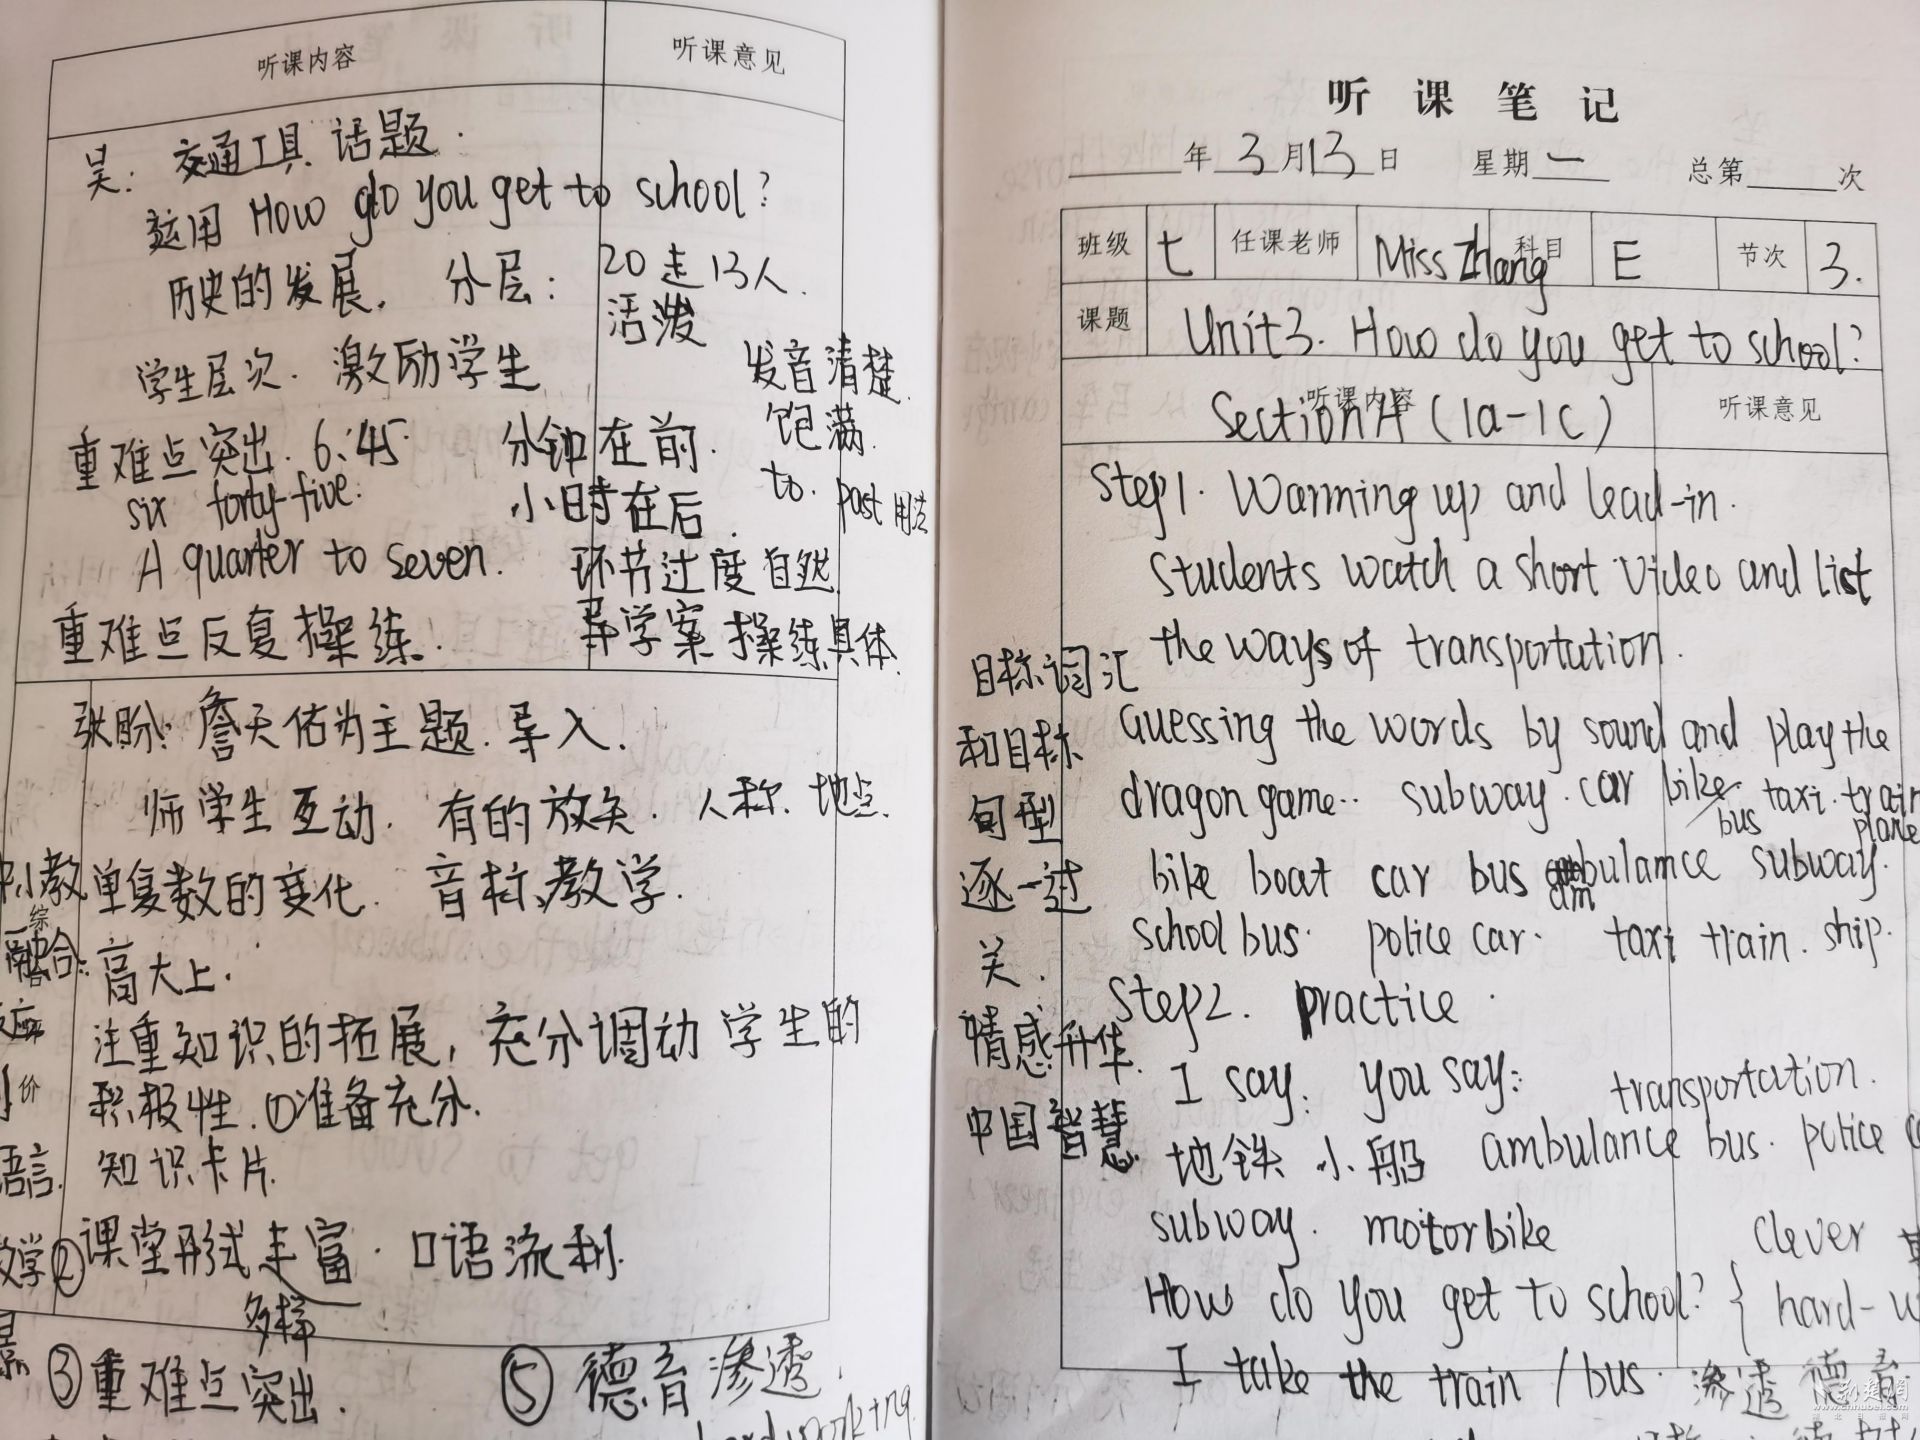 听课内容 听课意见
吴: 交通工具 话题.
运用 How do you get to school?
历史的发展. 分层: 20走13人.
活泼
学生层次. 激励学生
发音清楚.
饱满.
重难点突出. 6:45 分钟在前.
to. past 用法
six forty-five. 小时在后.
A quarter to seven. 环节过度自然.
重难点反复操练. 导学案操练具体.
张盼: 詹天佑为主题. 导入.
师学生互动. 有的放矢. 人称. 地点.
单复数的变化. 音标教学.
综
融合: 高大上.
注重知识的拓展, 充分调动学生的
价 积极性. ①准备充分.
语言. 知识卡片.
②课堂形式丰富. 口语流利.
多样
③重难点突出. ⑤德育渗透.
hard working
听课笔记
年3月13日 星期一 总第 次
班级 七 任课老师 Miss Zhang 科目 E 节次 3.
课题 Unit3. How do you get to school?
听课内容 听课意见
Section A (1a-1c)
Step1. Warming up and lead-in.
Students watch a short video and list
the ways of transportation.
目标词汇
和目标
句型
逐一过
关.
情感升华.
中国智慧.
Guessing the words by sound and play the
dragon game.. subway. car bike. taxi. train
bus plane
bike boat car bus ambulance subway.
am
school bus. police car. taxi train. ship.
Step2. Practice.
I say: you say: transportation.
地铁 小船 ambulance bus. police
subway. motorbike clever
How do you get to school? { hard-w
I take the train / bus. 渗透德育.
荆楚网
www.cnhubei.com
湖北日报网